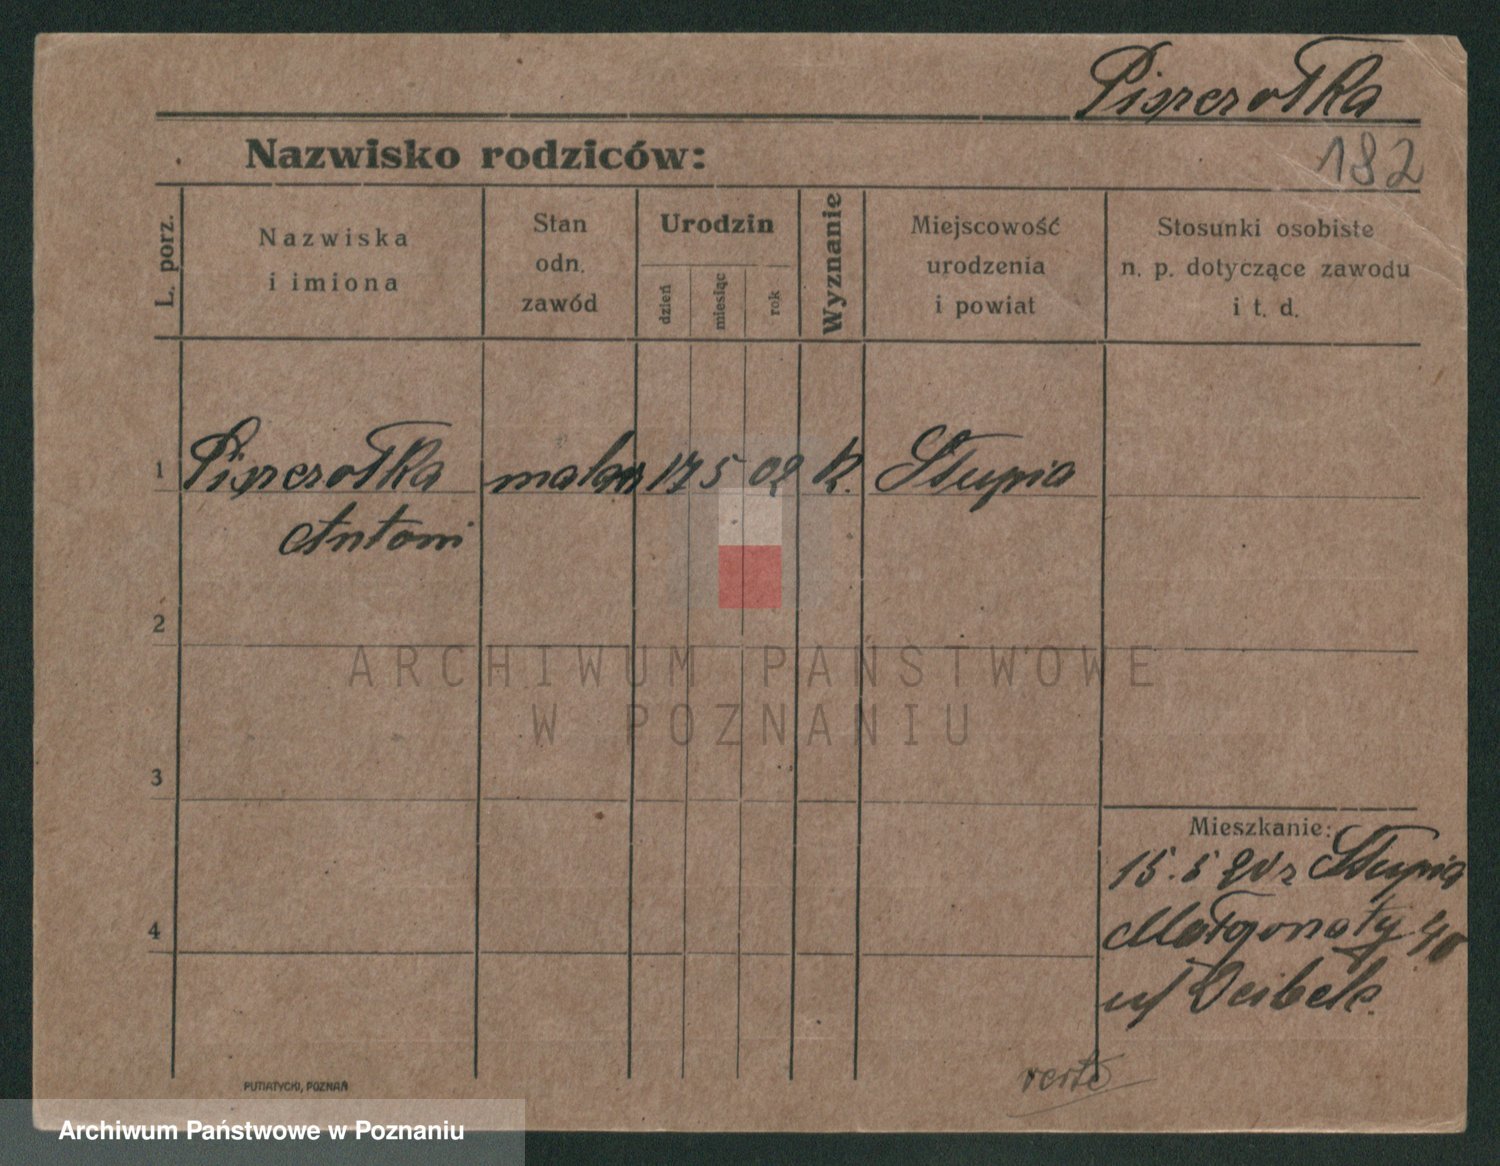 Piszczołka
Nazwisko rodziców:
182
L. porz.
Nazwiska
i imiona
Stan
odn.
zawód
Urodzin
dzień
miesiąc
rok
Wyznanie
Miejscowość
urodzenia
i powiat
Stosunki osobiste
n. p. dotyczące zawodu
i t. d.
1 malarz 17 5 02 K. Słupia
Antoni
2
3
4
Mieszkanie:
15. 5 Słupia
40
u/
verte
PUTIATYCKI, POZNAŃ
ARCHIWUM PAŃSTWOWE
W POZNANIU
Archiwum Państwowe w Poznaniu